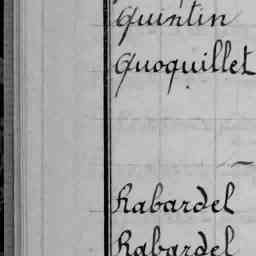 Quintin
Quoquillet
Rabardel
Rabardel